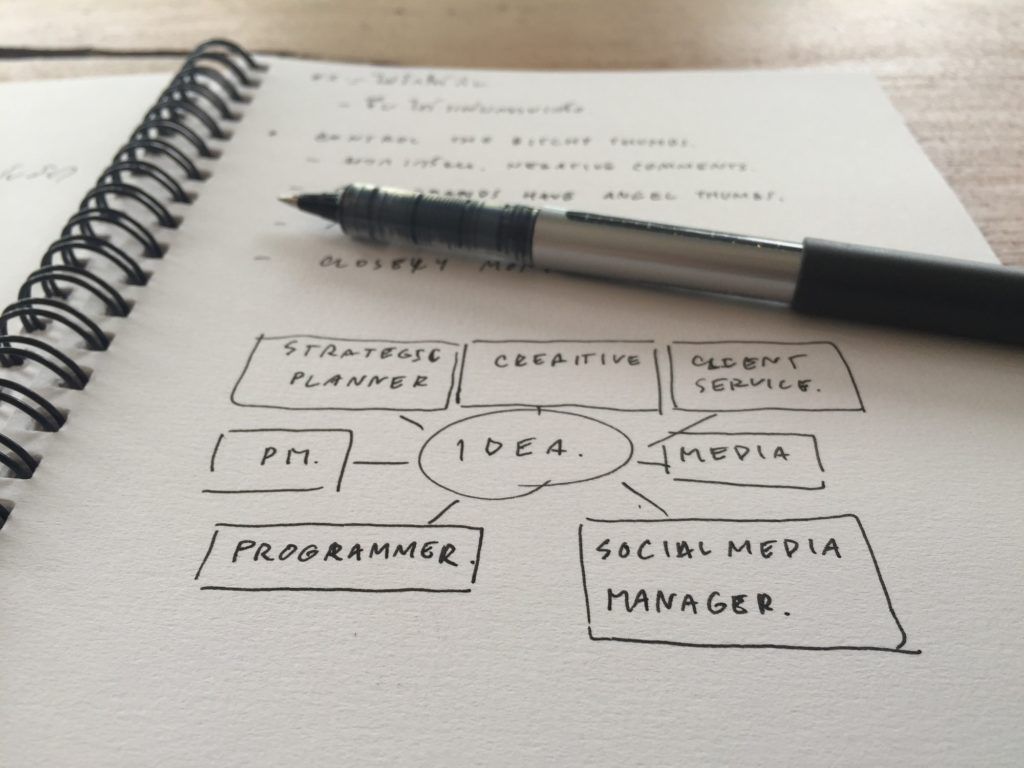 CONTROL THE BITCHY THUMBS.
NEGATIVE COMMENTS.
HAVE ANGEL THUMBS.
- CLOSELY
STRATEGIC
PLANNER
CREATIVE
CLIENT
SERVICE.
PM.
IDEA.
MEDIA
PROGRAMMER.
SOCIAL MEDIA
MANAGER.